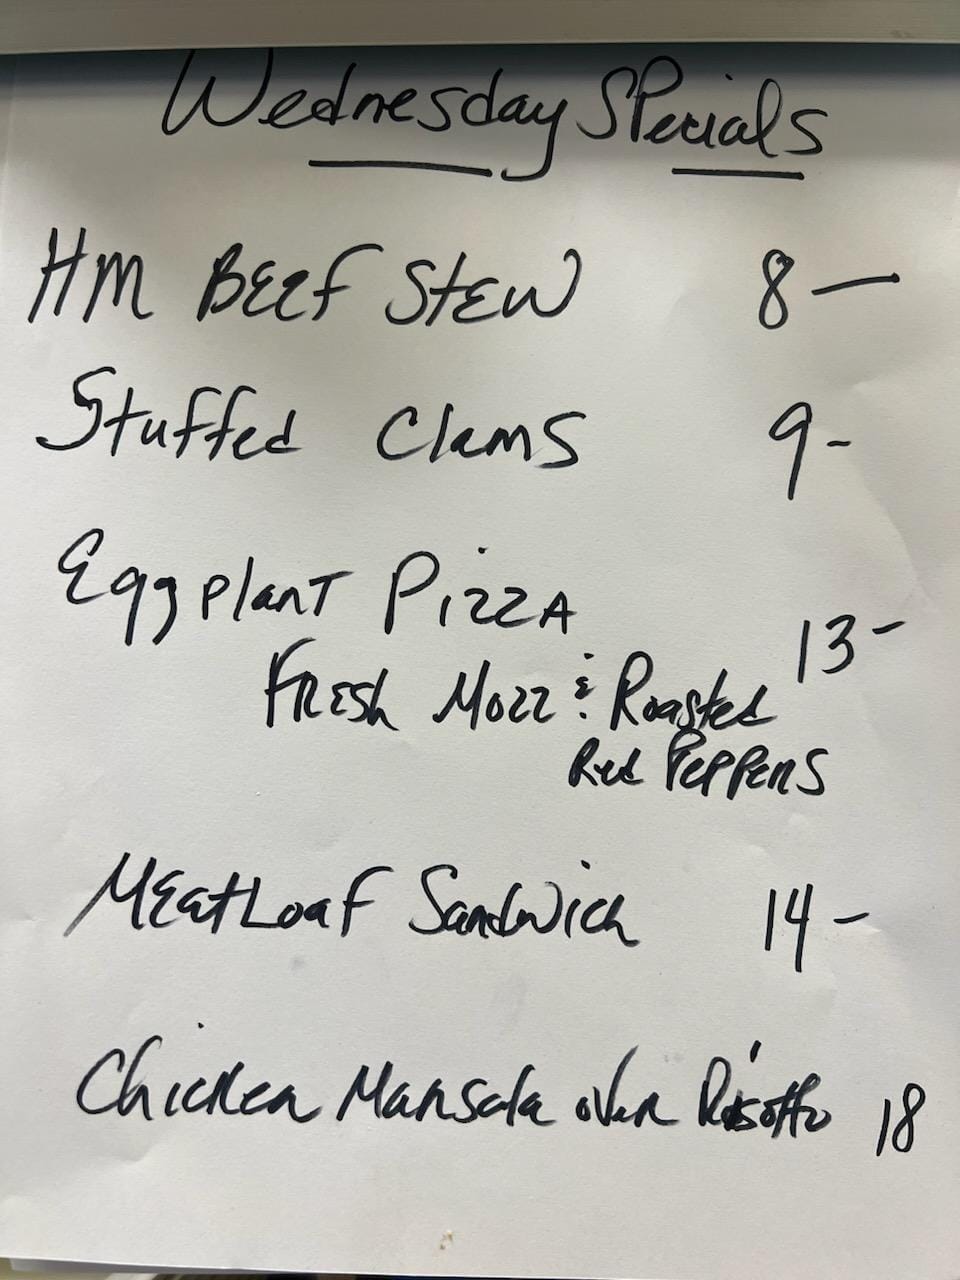 Wednesday Specials
HM Beef Stew 8—
Stuffed Clams 9-
Eggplant Pizza 13-
Fresh Mozz & Roasted
Red Peppers
Meatloaf Sandwich 14-
Chicken Marsala over Risotto 18